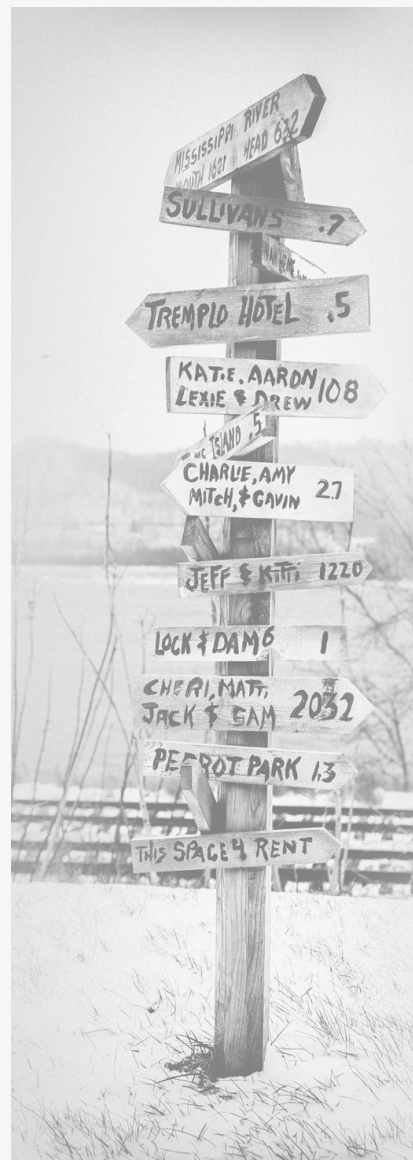 MISSISSIPPI RIVER
MOUTH 1621 HEAD 622
SULLIVANS .7
TREMPLO HOTEL .5
KATIE, AARON
LEXIE & DREW 108
ISLAND .5
CHARLIE, AMY
MITCH, & GAVIN 27
JEFF & KITTI 1220
LOCK & DAM 6 1
CHERI, MATT,
JACK & SAM 2032
PERROT PARK 1.3
THIS SPACE 4 RENT